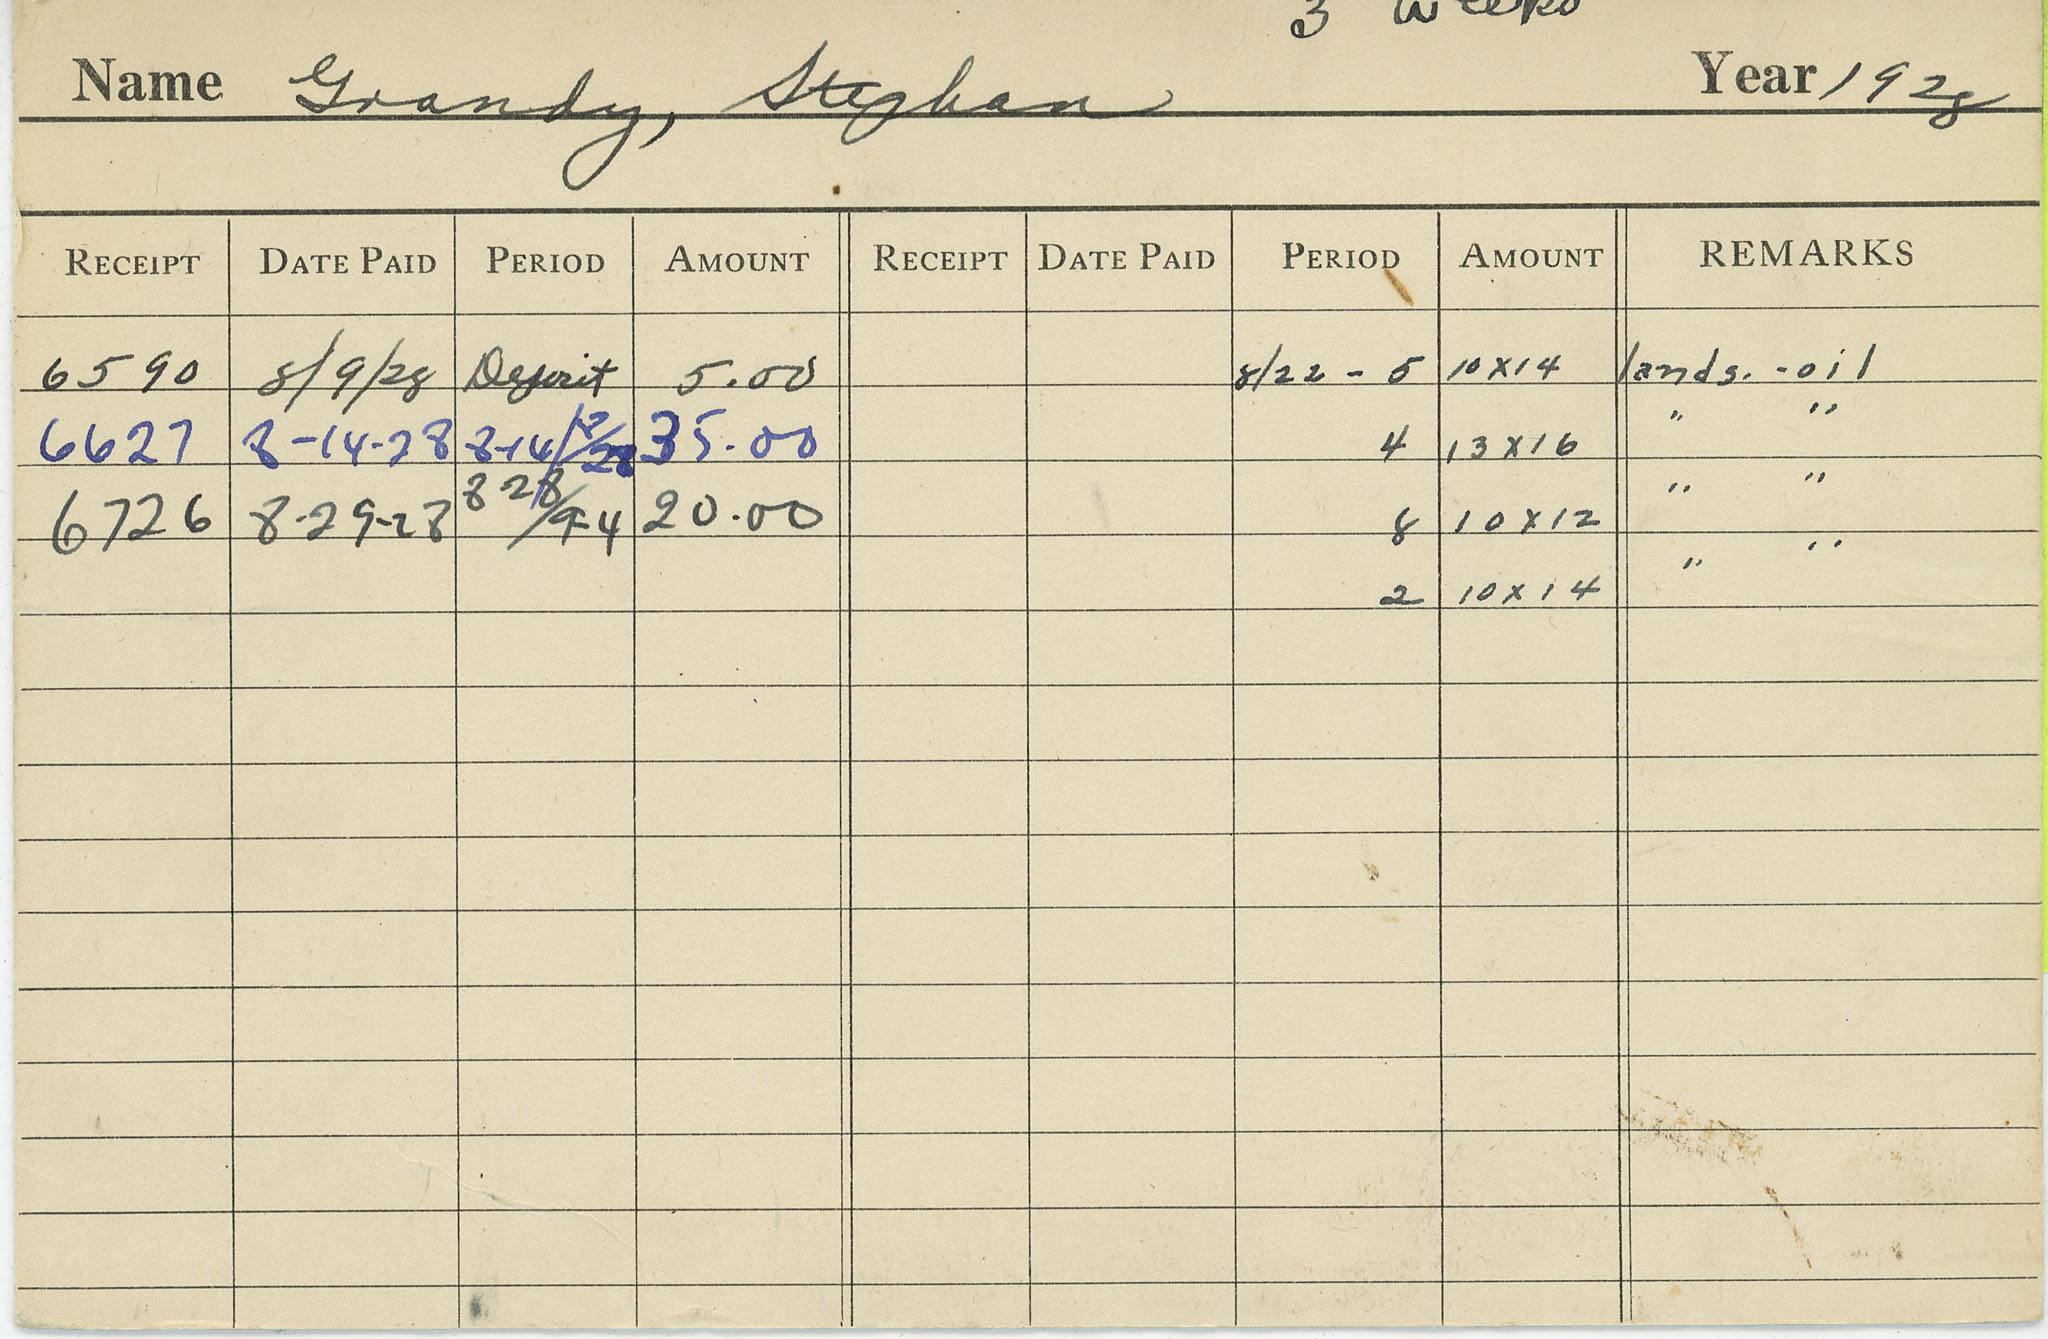 3 weeks
Name Grandy, Stephan Year 1928
RECEIPT DATE PAID PERIOD AMOUNT RECEIPT DATE PAID PERIOD AMOUNT REMARKS
6590 8/9/28 Deposit 5.00 8/22 - 5 10x14 lands. - oil
6627 8-14-28 8-14/ 28 35.00 4 13x16 " "
6726 8-29-28 8 28/9-4 20.00 8 10x12 " "
2 10x14 " "